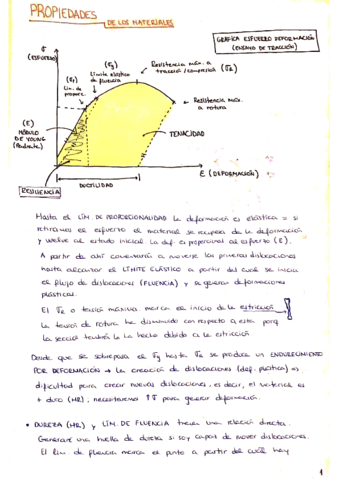 PROPIEDADES
DE LOS MATERIALES
GRÁFICA ESFUERZO DEFORMACIÓN
(ENSAYO DE TRACCIÓN)
σ
(ESFUERZO)
Límite elástico
de fluencia
Resistencia máx. a
tracción/compresión
Lím. de
proporc.
Resistencia máx.
a rotura
(E)
MÓDULO
DE YOUNG
(Pendiente)
TENACIDAD
ε (DEFORMACIÓN)
RESILIENCIA
DUCTILIDAD
Hasta el LÍM. DE PROPORCIONALIDAD la deformación es elástica = si
retiramos el esfuerzo el material se recupera de la deformación
y vuelve al estado inicial. La def. es proporcional al esfuerzo (E).
A partir de ahí comenzarán a moverse las primeras dislocaciones
hasta alcanzar el LÍMITE ELÁSTICO a partir del cual se inicia
el flujo de dislocaciones (FLUENCIA) y se generan deformaciones
plásticas.
El σR o tensión máxima marca el inicio de la estricción
La tensión de rotura ha disminuido con respecto a esta porq
la sección también lo ha hecho debido a la estricción
Desde que se sobrepasa el σy hasta σR se produce un ENDURECIMIENTO
POR DEFORMACIÓN → la creación de dislocaciones (def. plástica) es
dificultad para crear nuevas dislocaciones, es decir, el material es
+ duro (HR), necesitaremos ↑σ para generar deformación.
• DUREZA (HR) y LÍM. DE FLUENCIA tienen una relación directa.
Generaré una huella de dureza si soy capaz de mover dislocaciones.
El lím. de fluencia marca el punto a partir del cual hay
1